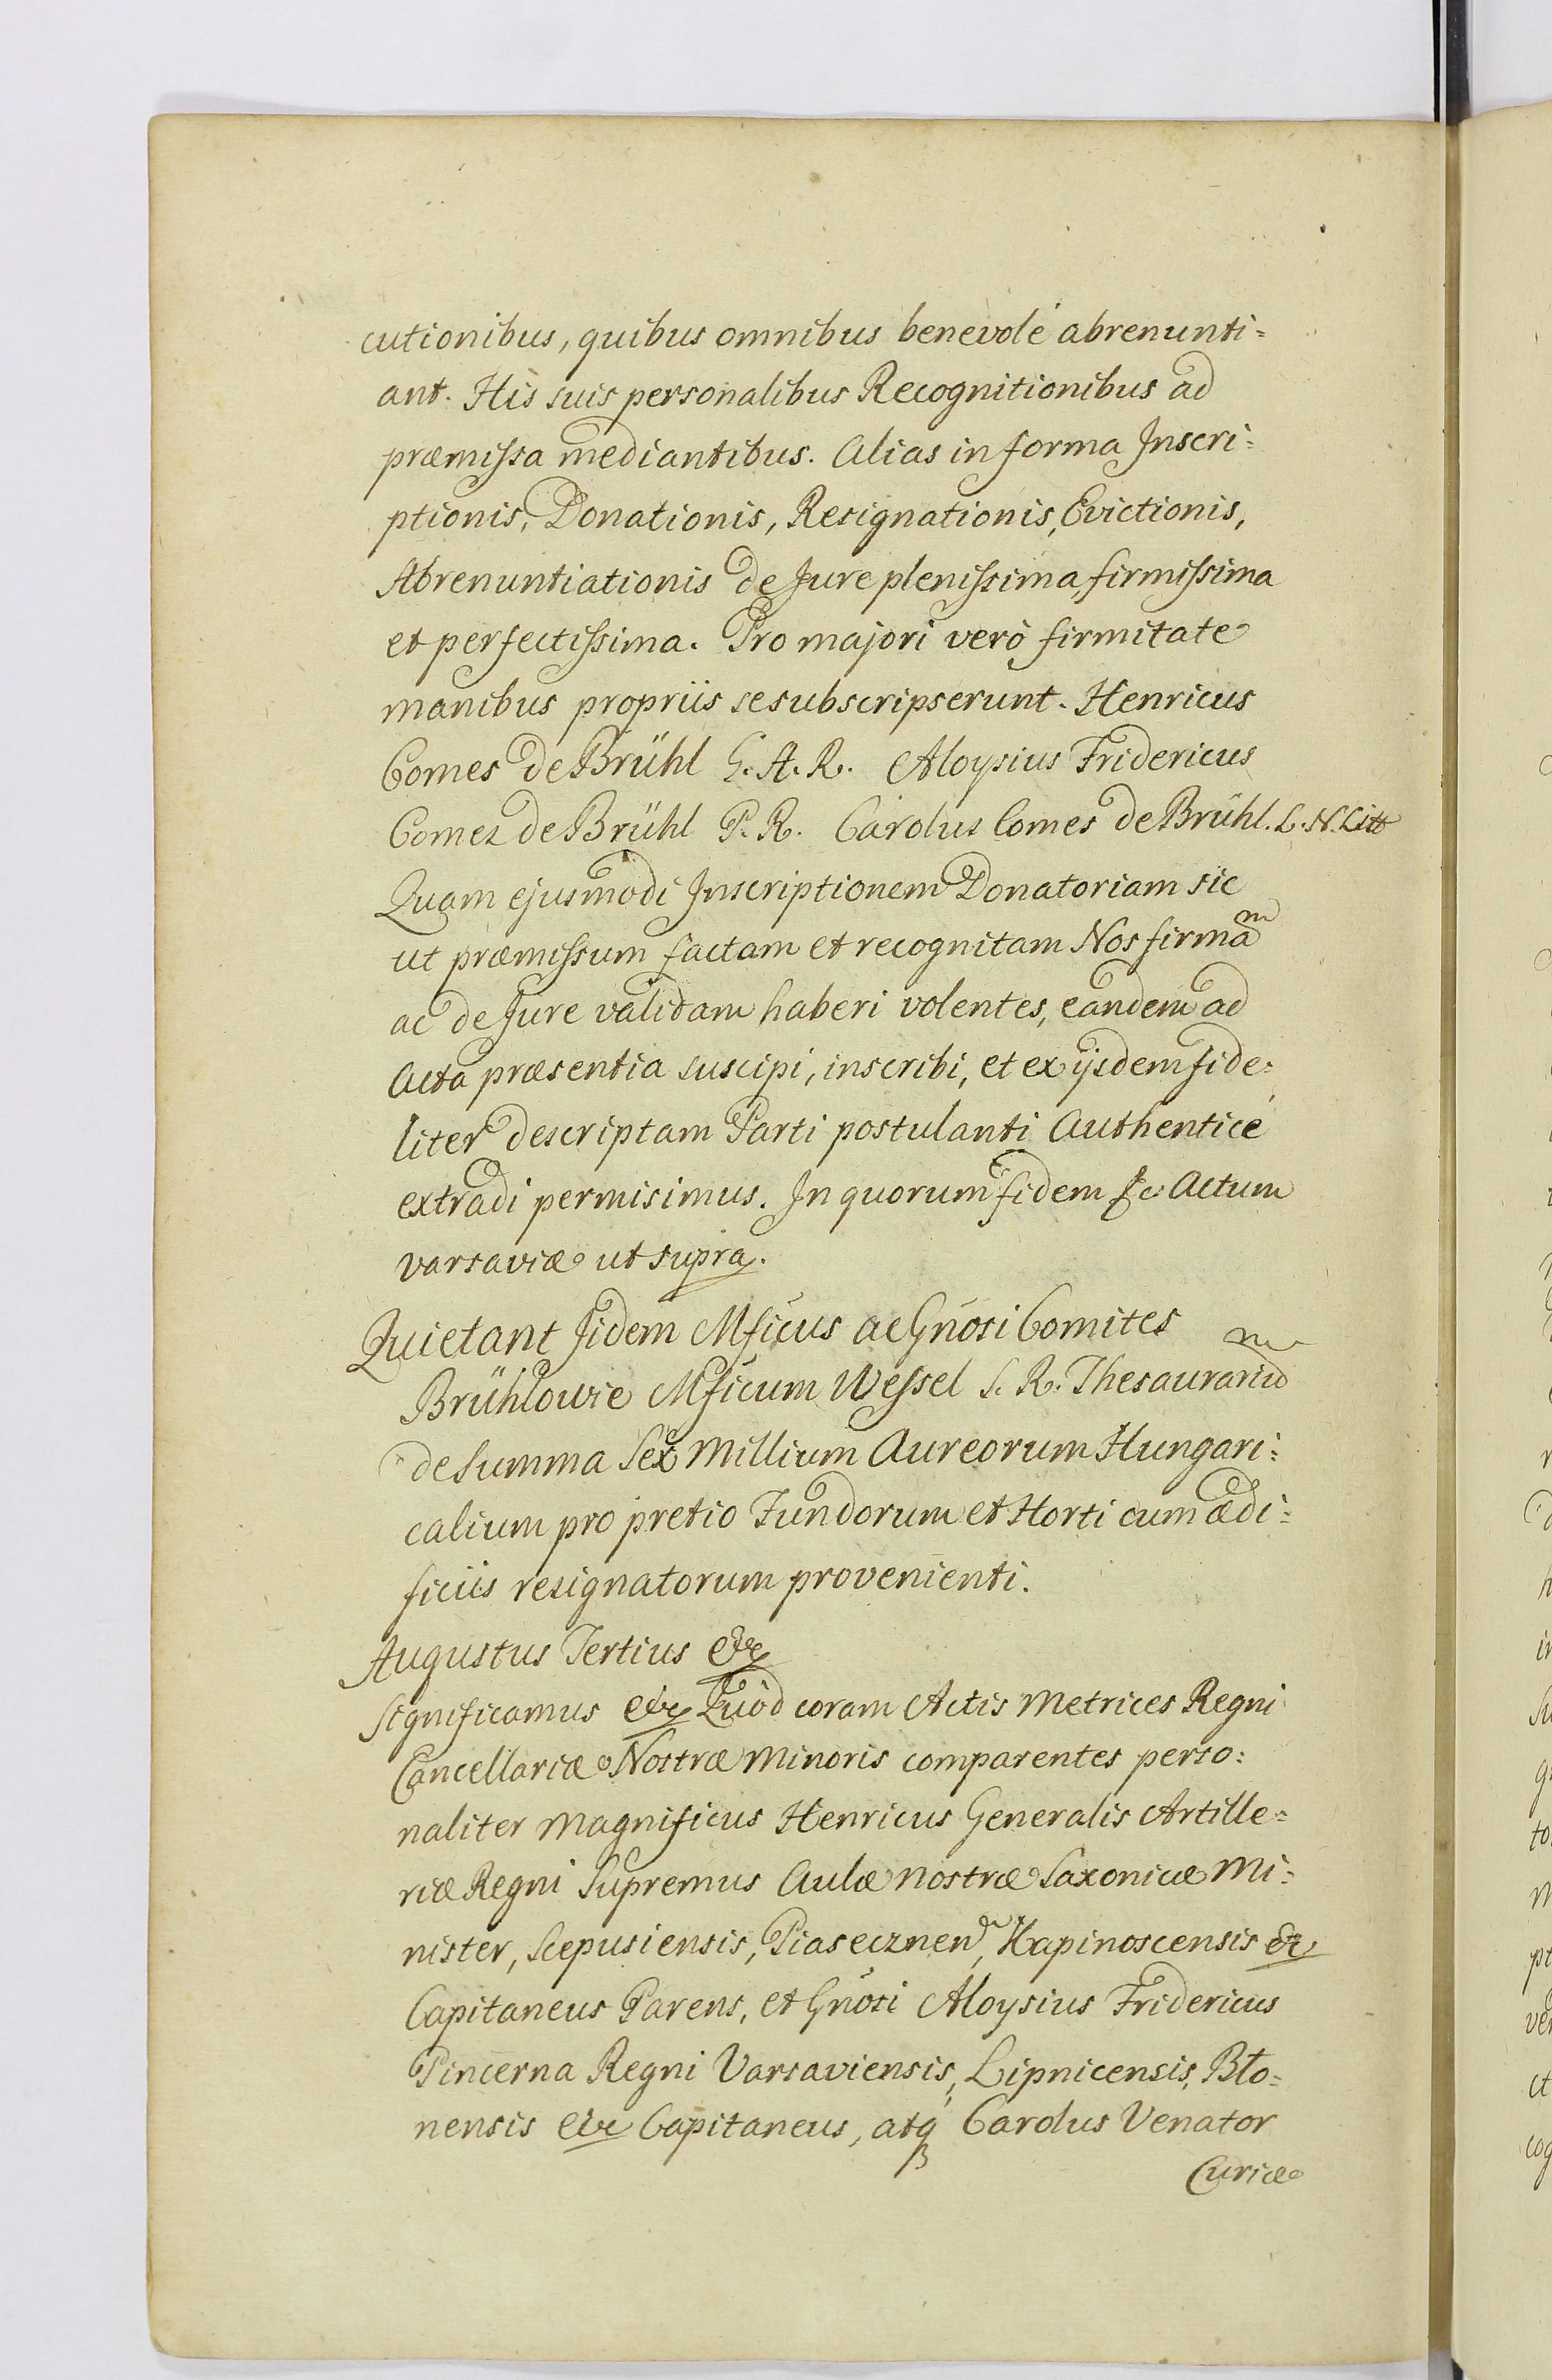 cutionibus, quibus omnibus benevolé abrenunti=
ant. His suis personalibus Recognitionibus ad
præmissa mediantibus. Alias in forma Inscri=
ptionis, Donationis, Resignationis, Evictionis,
Abrenuntiationis de Jure plenissima, firmissima
et perfectissima. Pro majori verò firmitate
manibus propriis se subscripserunt. Henricus
Comes de Brühl G. A. R. Aloysius Fridericus
Comes de Brühl P. R. Carolus Comes de Brühl. L. N. Litt
Quam ejusmodi Inscriptionem Donatoriam sic
ut præmissum factam et recognitam Nos firmam
ac de Jure validam haberi volentes, eandem ad
Acta præsentia suscipi, inscribi, et ex ijsdem fide=
liter descriptam Parti postulanti Authenticé
extradi permisimus. In quorum fidem &c Actum
varsaviæ ut supra.
Quietant Jidem Mficus ac Gnosi Comites
Brühlowie Mficum Wessel S. R. Thesaurarium
de summa Sex Millium Aureorum Hungari=
calium pro pretio Fundorum et Horti cum ædi=
ficiis resignatorum provenienti.
Augustus Tertius &c
Significamus &c Quòd coram Actis Metrices Regni
Cancellariæ Nostræ Minoris comparentes perso=
naliter Magnificus Henricus Generalis Artille=
riæ Regni Supremus Aulæ nostræ Saxonicæ Mi=
nister, Scepusiensis, Piasecznen, Kapinoscensis &c
Capitaneus Parens, et Gnosi Aloysius Fridericus
Pincerna Regni Varsaviensis, Lipnicensis, Bło=
nensis &c Capitaneus, atq Carolus Venator
Curiæ